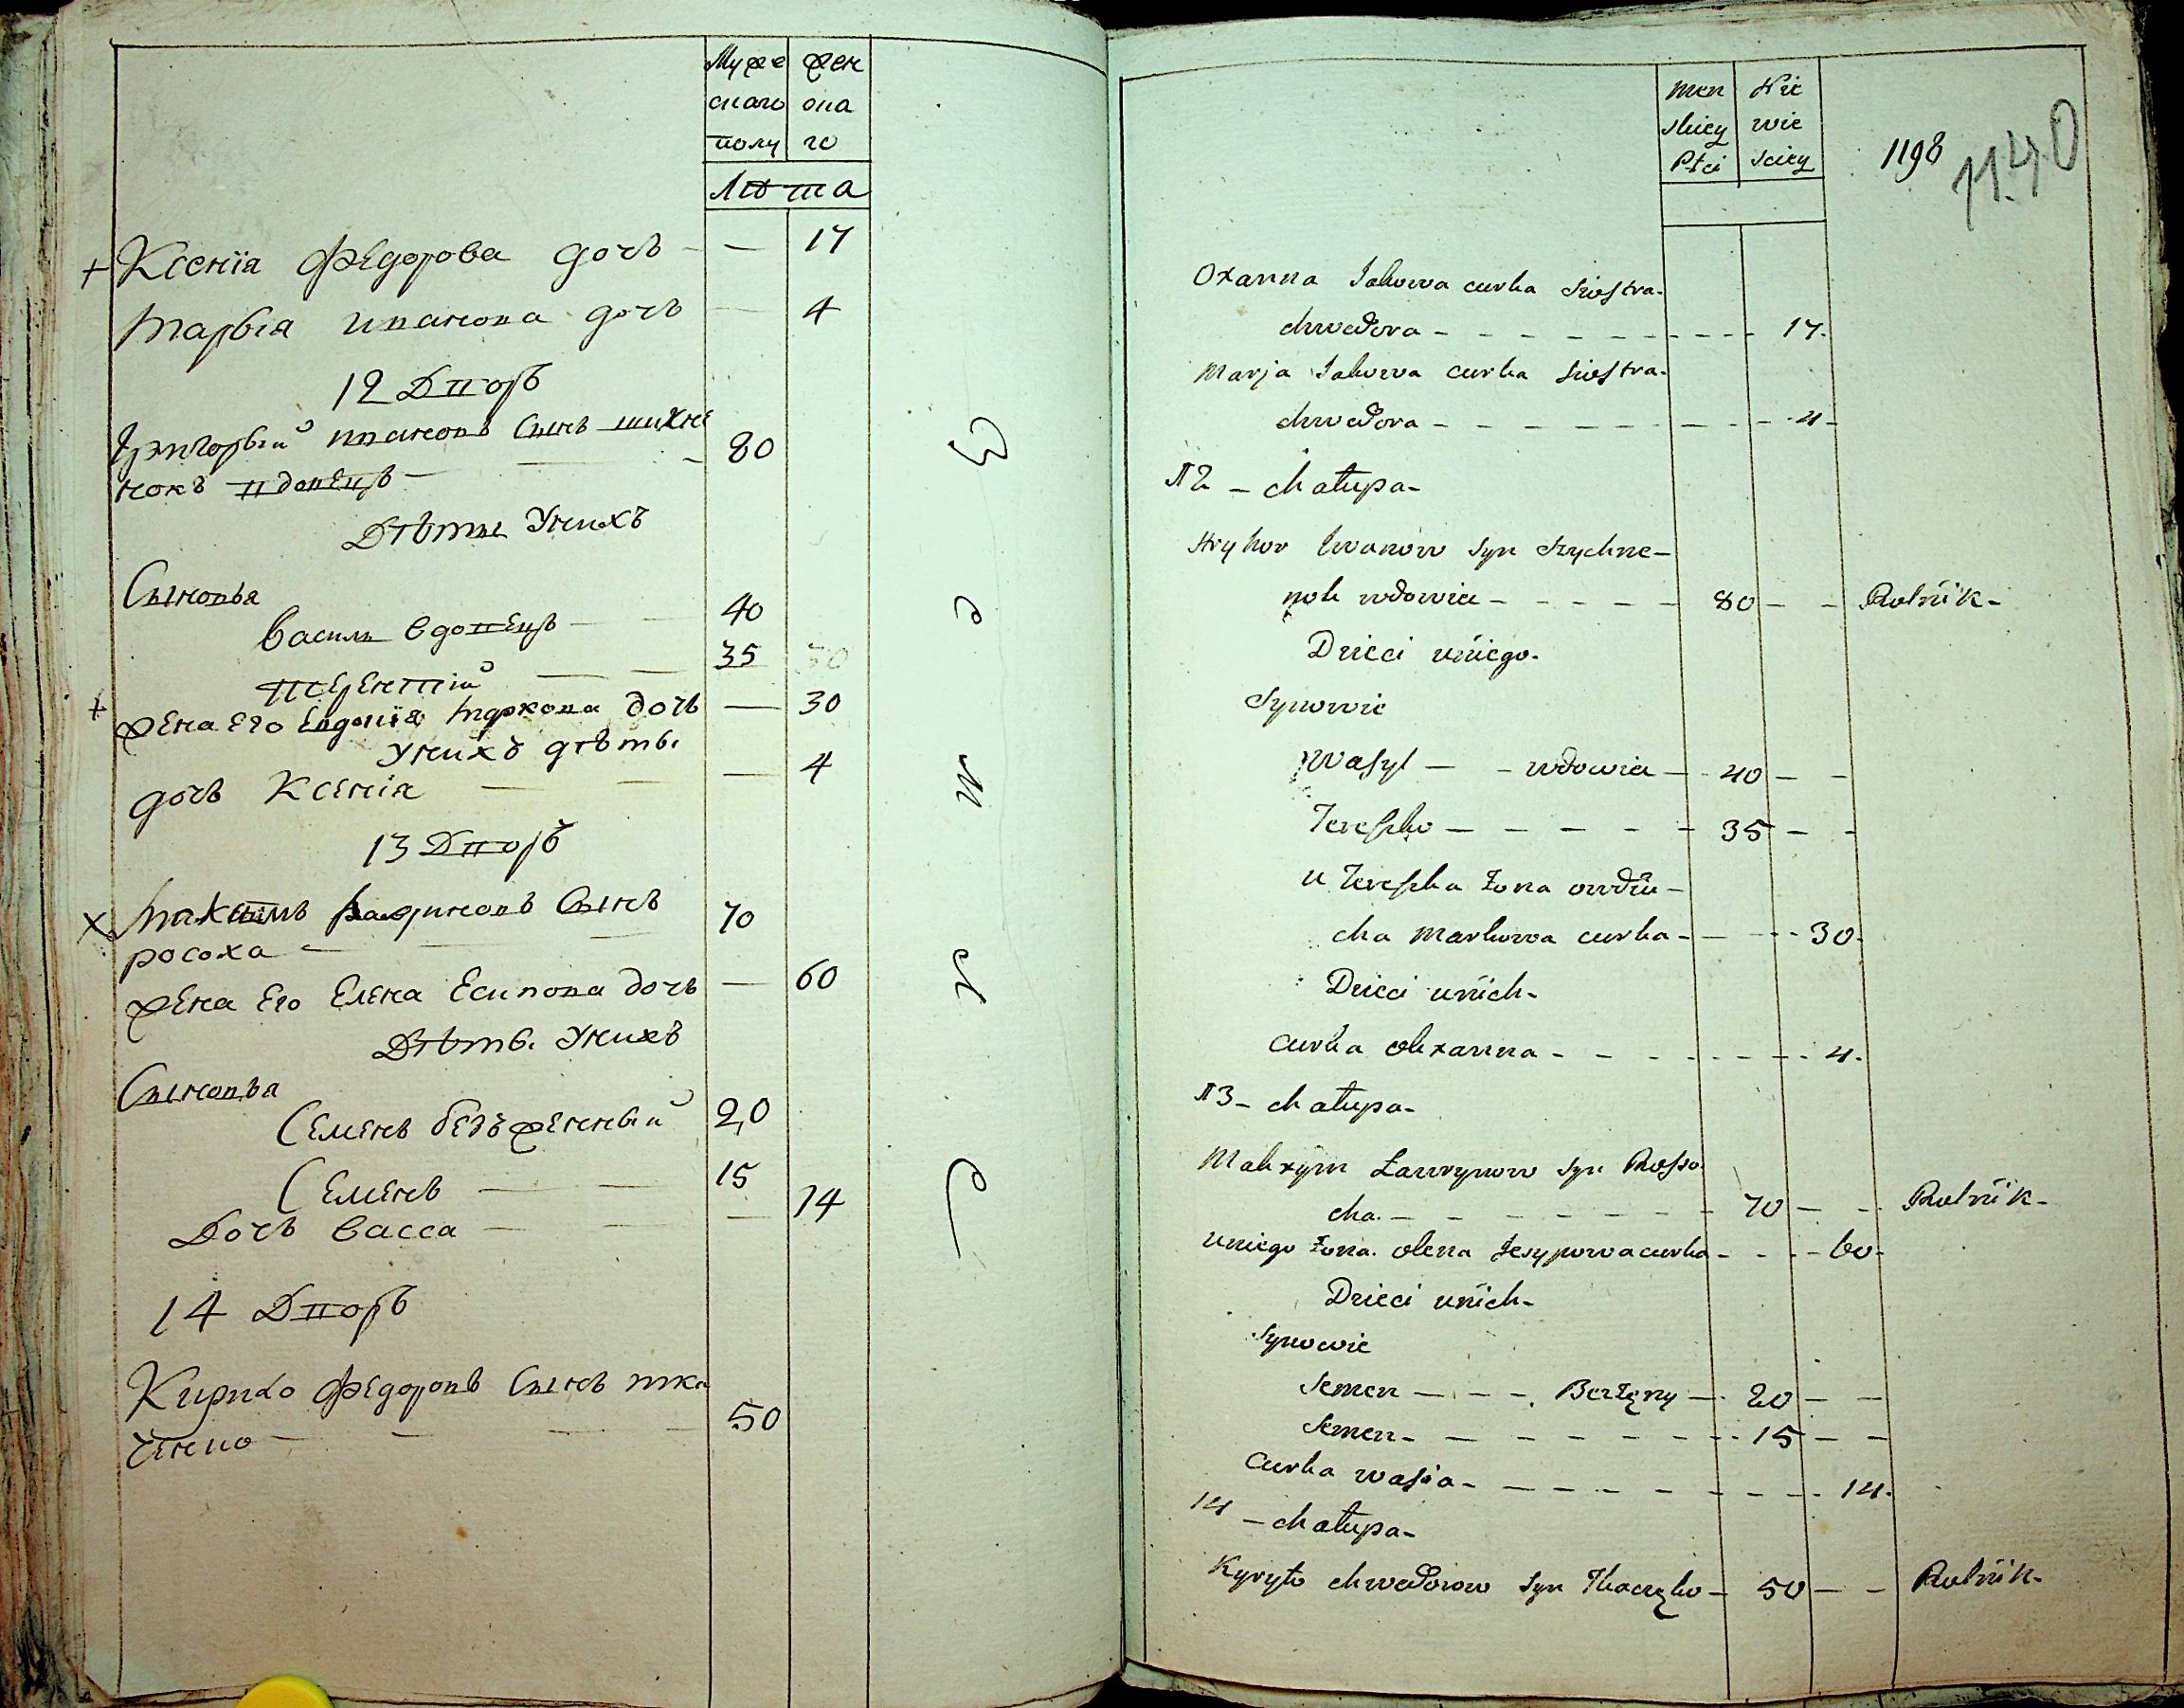 Муже жен
скаго ска
полу го
Лѣта
+ Ксенїя Федорова дочь — — 17
Марья иванова дочь — 4
12 Дворъ
Григорьй ивановъ Сынъ шихне
нокъ вдовецъ — — 80
Дѣты Унихъ
Сыновья
Василь вдовецъ — — 40
терентий — — 35 30
+ жена его Евдокїя Маркова дочь — 30
Унихъ дѣти
дочь Ксенія — — — 4
13 Дворъ
× Максимъ Сынъ
росоха — — — 70
жена Его Елена Есипова дочь — 60
Дѣти Унихъ
Сыновья
Семенъ безъженный 20
Семенъ — — 15
Дочь Васса — — — 14
14 Дворъ
Кирило Федоровъ Сынъ тка
ченко — — — — 50
З
е
м
л
Men Nie
skiey wie
Płci sciey
1198
1140
Oxanna Jakowa curka siostra
chwedora — — — — 17.
Marja Jakowa curka siostra
chwedora — — — — 4
12 — chałupa
Hryhor Iwanow syn Szychne-
nok wdowiec — — — 80 — — Rolnik
Dzieci uniego
Synowie
Wasyl — — wdowiec — 40 — —
Tereszko — — — — 35 — —
u Tereszka żona owdiu-
cha Markowa curka — — 30
Dzieci unich
curka oxanna — — — 4.
13 — chałupa
Makxym Ławrynow syn Rosso
cha — — — — 70 — — Rolnik
uniego żona olena Jesypowa curka — — 60
Dzieci unich
Synowie
Semen — — — Bezżęny — 20 — —
Semen — — — — 15 — —
curka wasia — — — — 14.
14 — chałupa
Kyryło chwedorow syn Tkaczęko — 50 — — Rolnik